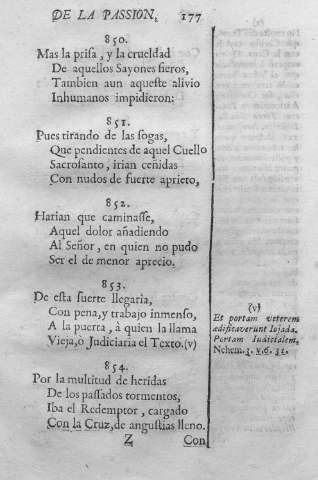 DE LA PASSION. 177
850.
Mas la prisa, y la crueldad
De aquellos Sayones fieros,
Tambien aun aqueste alivio
Inhumanos impidieron:
851.
Pues tirando de las sogas,
Que pendientes de aquel Cuello
Sacrosanto, irian ceñidas
Con nudos de fuerte aprieto,
852.
Harian que caminasse,
Aquel dolor añadiendo
Al Señor, en quien no pudo
Ser el de menor aprecio.
853.
De esta suerte llegaria,
Con pena, y trabajo inmenso,
A la puerta, à quien la llama
Vieja, ò Judiciaria el Texto. (v)
854.
Por la multitud de heridas
De los passados tormentos,
Iba el Redemptor, cargado
Con la Cruz, de angustias lleno.
Z Con
(v)
Et portam veterem
ædificaverunt Iojada.
Portam Iudicialem.
Nehem. 3. v. 6. 31.